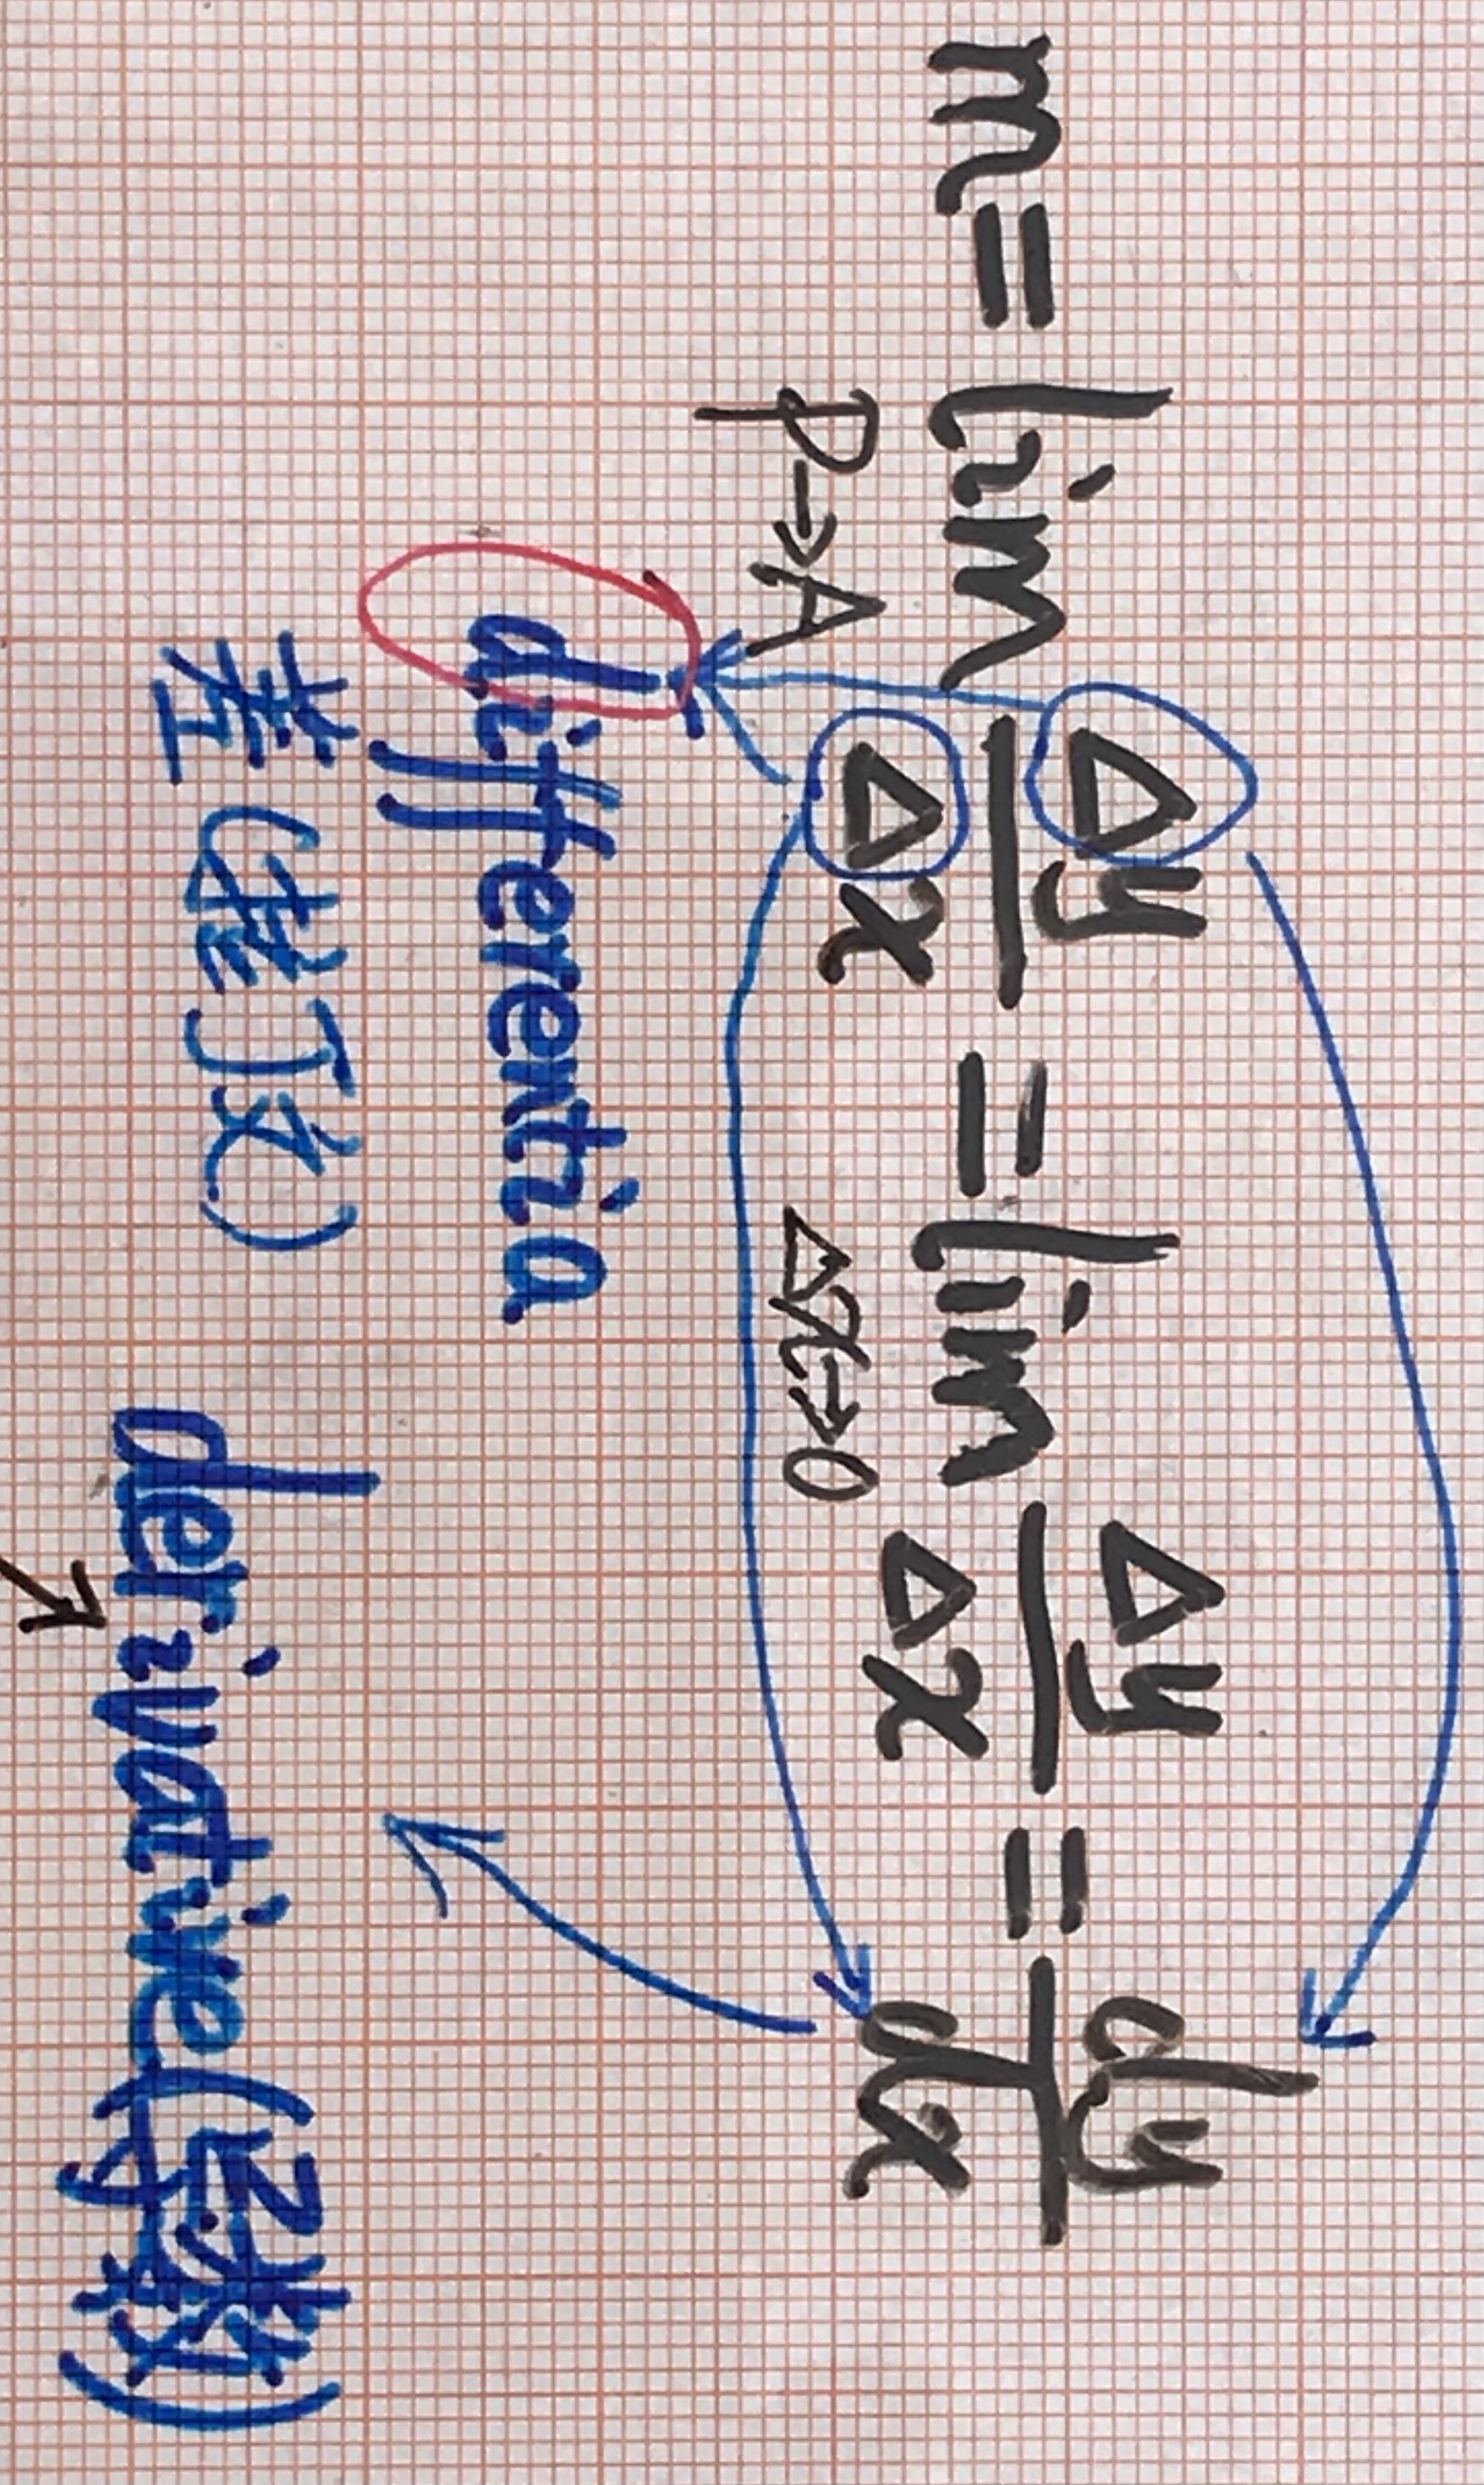 m = lim Δy/Δx = lim Δy/Δx = dy/dx
P→A Δx→0
differentia
差(拉丁文)
derivative(导数)